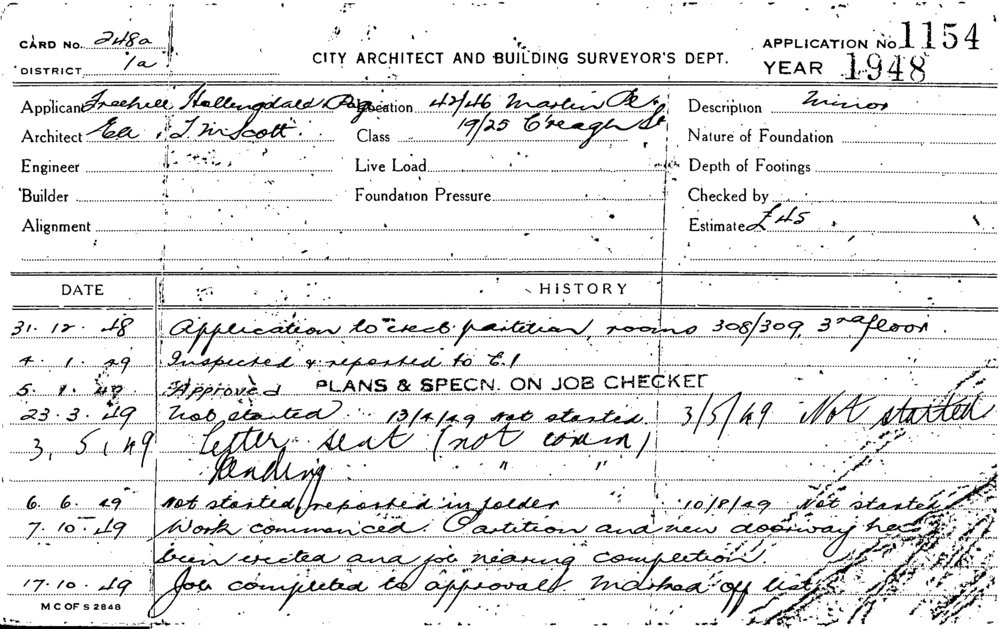 CARD No. 248a
DISTRICT 1a
CITY ARCHITECT AND BUILDING SURVEYOR'S DEPT.
APPLICATION No. 1154
YEAR 1948
Applicant Freehill Hollingdale & Page
Location 42/46 Martin Pl.
19/25 C'reagh St
Description Minor
Architect Ea. T M Scott.
Class
Nature of Foundation
Engineer
Live Load
Depth of Footings
Builder
Foundation Pressure
Checked by
Alignment
Estimate £45
DATE HISTORY
31. 12. 48 Application to erect partition, rooms 308/309, 3rd floor.
4. 1. 49 Inspected & reported to C.I
5. 1. 49 Approved PLANS & SPECN. ON JOB CHECKED
23. 3. 49 Not started 13/4/49 Not started. 3/5/49 Not started
3. 5. 49 Letter sent (not comm)
Pending " "
6. 6. 49 Not started, reported in folder 10/8/49 Not started
7. 10. 49 Work commenced. Partition and new doorway has
been erected and job nearing completion.
17. 10. 49 Job completed to approval. Marked off list
M C OF S 2848